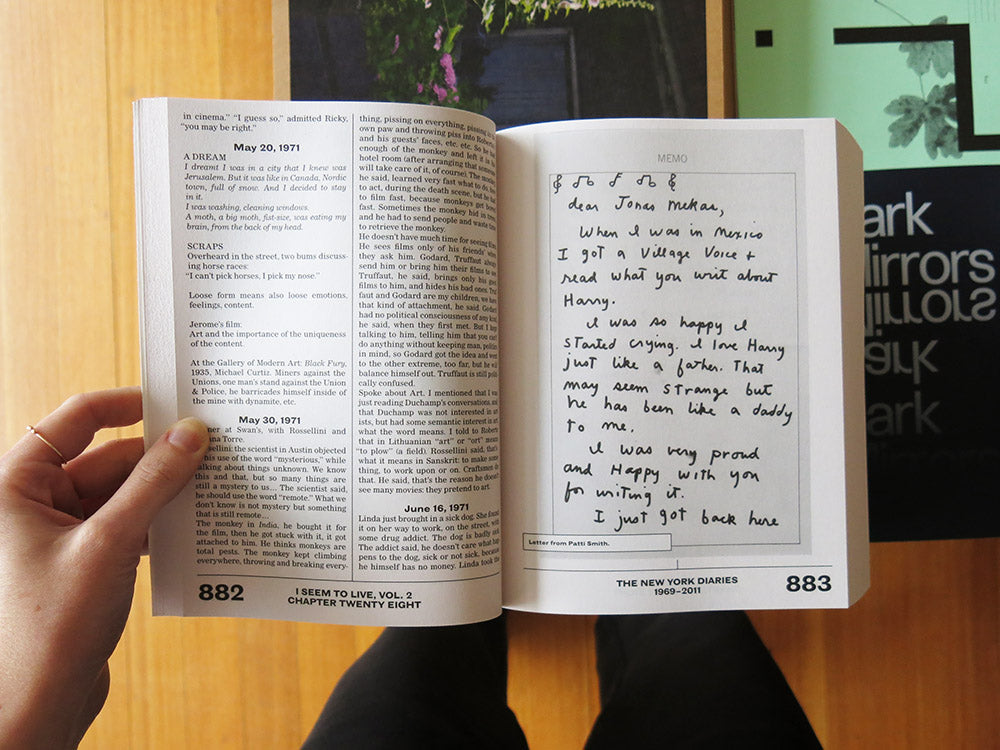 in cinema." "I guess so," admitted Ricky,
"you may be right."
May 20, 1971
A DREAM
I dreamt I was in a city that I knew was
Jerusalem. But it was like in Canada, Nordic
town, full of snow. And I decided to stay
in it.
I was washing, cleaning windows.
A moth, a big moth, fist-size, was eating my
brain, from the back of my head.
SCRAPS
Overheard in the street, two bums discuss-
ing horse races:
"I can't pick horses, I pick my nose."
Loose form means also loose emotions,
feelings, content.
Jerome's film:
Art and the importance of the uniqueness
of the content.
At the Gallery of Modern Art: Black Fury,
1935, Michael Curtiz. Miners against the
Unions, one man's stand against the Union
& Police, he barricades himself inside of
the mine with dynamite, etc.
May 30, 1971
at Swan's, with Rossellini and
Torre.
the scientist in Austin objected
this use of the word "mysterious," while
talking about things unknown. We know
this and that, but so many things are
still a mystery to us... The scientist said,
he should use the word "remote." What we
don't know is not mystery but something
that is still remote...
The monkey in India, he bought it for
the film, then he got stuck with it, it got
attached to him. He thinks monkeys are
total pests. The monkey kept climbing
everywhere, throwing and breaking every-
thing, pissing on everything, pissing in
own paw and throwing piss into
and his guests' faces, etc. etc. So he
enough of the monkey and left it in
hotel room (after arranging that
will take care of it, of course). The
he said, learned very fast what to do,
to act, during the death scene, but he had
to film fast, because monkeys get bored
fast. Sometimes the monkey hid in trees,
and he had to send people and waste time
to retrieve the monkey.
He doesn't have much time for seeing films.
He sees films only of his friends' when
they ask him. Godard, Truffaut always
send him or bring him their films to see.
Truffaut, he said, brings only his good
films to him, and hides his bad ones. Truf-
faut and Godard are my children, we have
that kind of attachment, he said. Godard
had no political consciousness of any kind,
he said, when they first met. But I kept
talking to him, telling him that you can't
do anything without keeping man, politics
in mind, so Godard got the idea and went
to the other extreme, too far, but he will
balance himself out. Truffaut is still politi-
cally confused.
Spoke about Art. I mentioned that I was
just reading Duchamp's conversations, and
that Duchamp was not interested in art-
ists, but had some semantic interest in art
what the word means. I told to Roberto
that in Lithuanian "art" or "ort" means
"to plow" (a field). Rossellini said, that's
what it means in Sanskrit: to make some-
thing, to work upon or on. Craftsmen do
that. He said, that's the reason he doesn't
see many movies: they pretend to art.
June 16, 1971
Linda just brought in a sick dog. She found
it on her way to work, on the street, with
some drug addict. The dog is badly sick.
The addict said, he doesn't care what hap-
pens to the dog, sick or not sick, because
he himself has no money. Linda took the
882
I SEEM TO LIVE, VOL. 2
CHAPTER TWENTY EIGHT
MEMO
dear Jonas Mekas,
When I was in Mexico
I got a Village Voice +
read what you writ about
Harry.
I was so happy I
started crying. I love Harry
just like a father. That
may seem strange but
he has been like a daddy
to me.
I was very proud
and Happy with you
for writing it.
I just got back here
Letter from Patti Smith.
THE NEW YORK DIARIES
1969–2011
883
ark
irrors